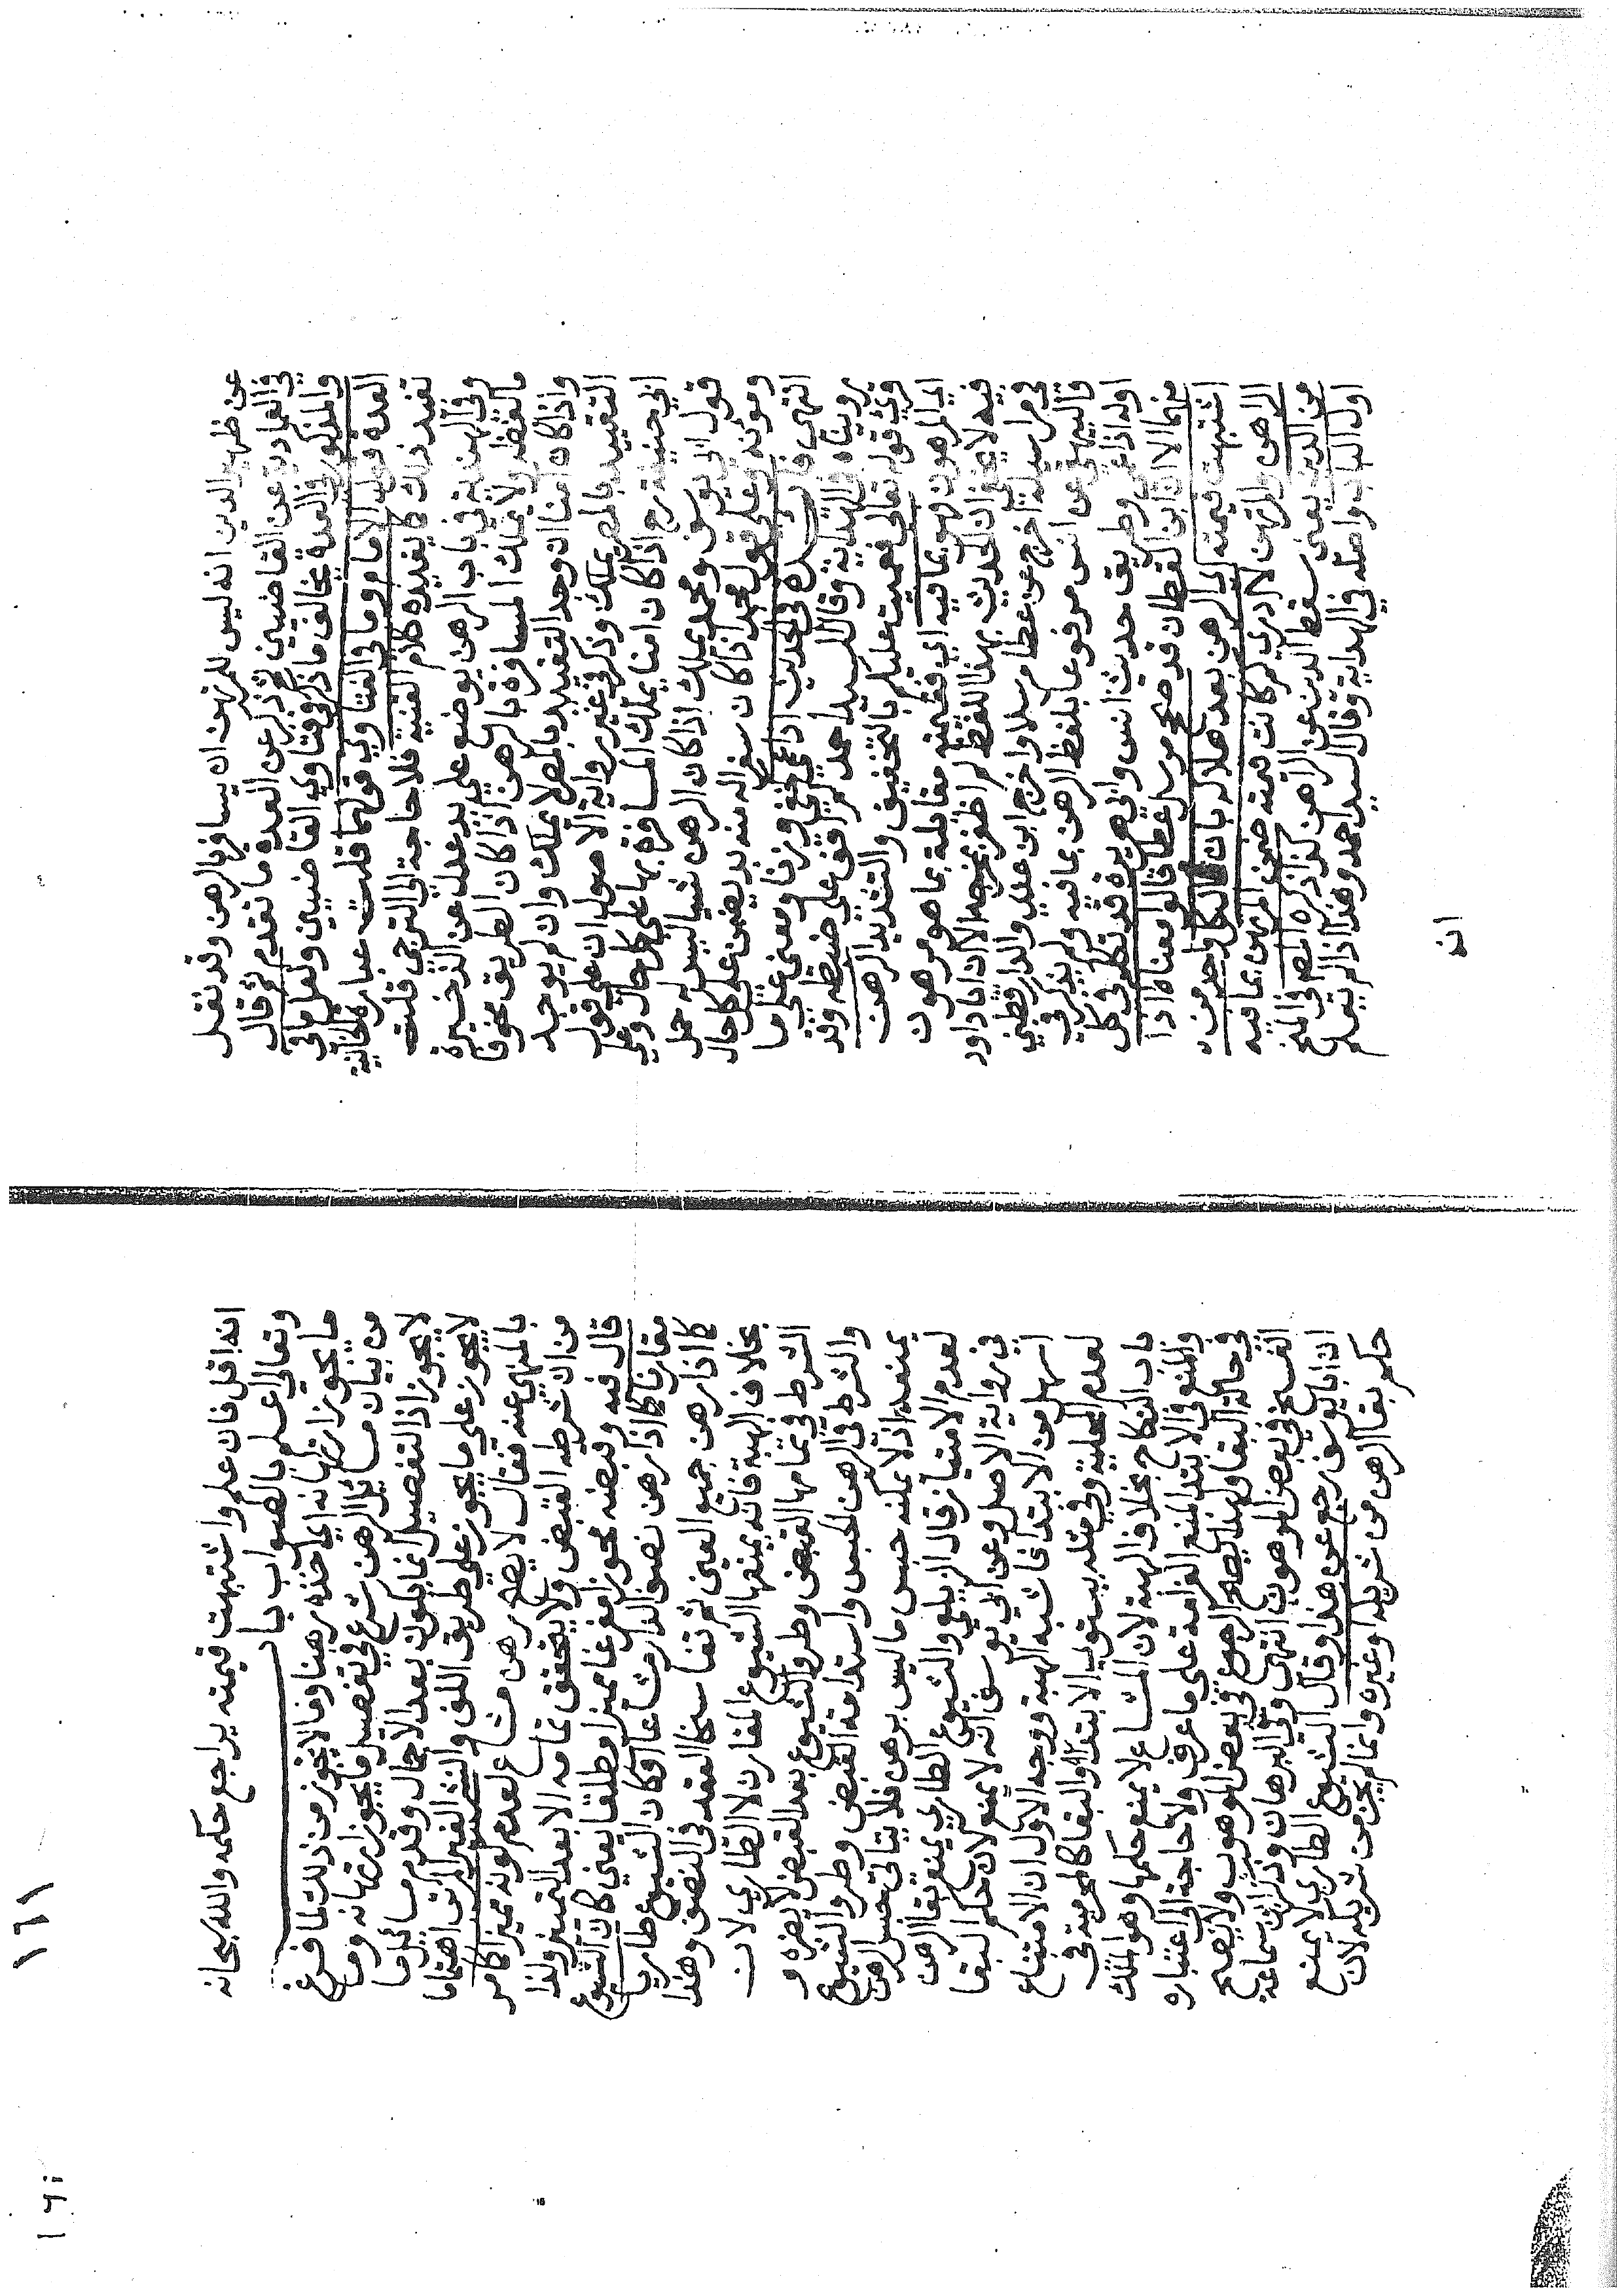 عن ظهير الدين انه ليس للمرتهن ان يسافر بالرهن وقد نقل
في العمادية عن القاضيين ثم ذكر عن العدة ما تقدم ثم قال
والمذكور في العدة يخالف ما ذكر في فتاوي القاضيين ولعل ما في
العدة قول الامام وما في الفتاوي قولهما قلت عبارة الخانية
تفيد ذلك كما يفيده كلام القنية فلا حاجة الى الترجي قلت
وفي الهندية في باب الرهن يوضع على يد عدل عن الذخيرة
ولا يملك المسافرة بالرهن اذا كان الطريق مخوفا
واذا كان امنا ان وجد التقييد بالمصر لا يملك وان لم يوجد
التقييد بالمصر يملك وذكر في غير رواية الاصول ان على قول
ابي حنيفة رح اذا كان امنا يملك المسافرة بها على كل حال وعلى
قول ابي يوسف ومحمد يملك اذا كان الرهن شيا ليس له حمل
ومؤنة وعلى قول محمد اذا كان سفرا له منه بد يضمن على كل حال
انتهى في الحديث اذا عمي خفي وزنا ومعنى على ما
رويناه في الهداية وقال السيد احمد لم اقف على ضبطه وقد
قري قوله تعالى فعميت عليكم بالتخفيف والتشديد الرهن
اي المرهون فهو بما فيه اي فقيمته مقابلة بما هو مرهون
فيه لا يخفى ان الحديث بهذا اللفظ لم اظفر بمخرجه الا ان ابا داود
في مراسيله اخرج عن عطا مرسلا واخرج ابن عدي والدارقطني
والبيهقي عن انس مرفوعا بلفظ الرهن بما فيه ولم يذكر في
اوله اذا عمي وطريق حديث انس وابي هريرة قد تكلم في كل
منهما الا ان ابن القطان قد صحح مرسل عطا قالوا معناه اذا
اشتبهت قيمته اي الرهن بعد هلاكه بان قال كل واحد من
الراهن والمرتهن لا ادري كم كانت قيمته ضمن المرتهن بما فيه
من الدين يعني سقط الدين عن الراهن كذا ذكره المصنف في المنح
اول الباب واصله في الهداية وقال السيد احمد وهذا اذا لم يعلم
انه
انه اقل فان علم واشتبهت قيمته يراجع حكمه والله سبحانه
وتعالى اعلم بالصواب باب
ما يجوز ارتهانه اي اخذه رهنا وما لا يجوز من ذلك لما فرغ
من بيان مسائل الرهن شرع في تفصيل ما يجوز ارتهانه وما
لا يجوز اذ التفصيل انما يكون بعد الاجمال وقدم مسائل ما
لا يجوز على ما يجوز على طريق اللف والنشر الغير المرتب اهتماما
بالمنهي عنه فقال لا يصح رهن مشاع لعدم كونه مميزا كما مر
من ان شرطه القبض ولا يتحقق تمامه الا بعد التمييز ولذا
قال فيه وقبضه محوزا مفرغا مميزا مطلقا يعني كان الشيوع
مقارنا كما اذا رهن نصف الدار مشاعا او كان الشيوع طاريا
كما اذا رهن جميع العين ثم تفاسخا العقد في النصف وهذا
بخلاف الهبة فانه يمنعها الشيوع المقارن لا الطاري لان
الشرط في تمامها القبض وطرو الشيوع بعد القبض لا يضره و
والشرط في الرهن الحبس واستدامة القبض وطرو الشيوع
يمنعه اذ لا يمكنه حبس ما ليس برهن فلا يتاتى حبس الرهن
لعدم الامتياز قال الزيلعي والشيوع الطاري يمنع بقا الرهن
في رواية الاصل وعن ابي يوسف انه لا يمنع لان حكم البقا
اسهل من الابتدا فاشبه الهبة ووجه الاول ان الامتناع
لعدم المحلية وفي مثله يستوي الابتدا والبقا كالمحرمية في
باب النكاح بخلاف الهبة لان المشاع لا يمنع حكمها وهو الملك
والمنع في الابتدا لمنع الغرامة على ما عرف ولا حاجة الى اعتباره
في حالة البقا ولهذا يصح الرجوع في بعض الموهوب ولا يصح
الفسخ في بعض المرهون انتهى وفي البرهان وذكر ابن سماعة
ان ابا يوسف رجع عن هذا وقال الشيوع الطاري لا يمنع
حكم بقا الرهن من شريكه او غيره وانما لم يجز من شريكه لان
١٦١
١٦١